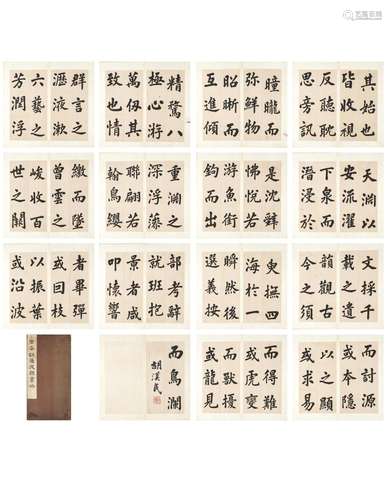 其始也
皆收視
反聽耽
思旁訊
曈曨而
彌鮮物
昭晰而
互進傾
精騖八
極心游
萬仞其
致也情
群言之
瀝液漱
六藝之
芳潤浮
天淵以
安流濯
下泉而
潛浸於
是沈辭
怫悅若
游魚銜
鉤而出
重淵之
深浮藻
聯翩若
翰鳥纓
繳而墜
曾雲之
峻收百
世之闕
文採千
載之遺
韻觀古
今之須
臾撫四
海於一
瞬然後
選義按
部考辭
就班抱
景者咸
叩懷響
者畢彈
或因枝
以振葉
或沿波
而討源
或本隱
以之顯
或求易
而得難
或虎變
而獸擾
或龍見
而鳥瀾
胡漢民